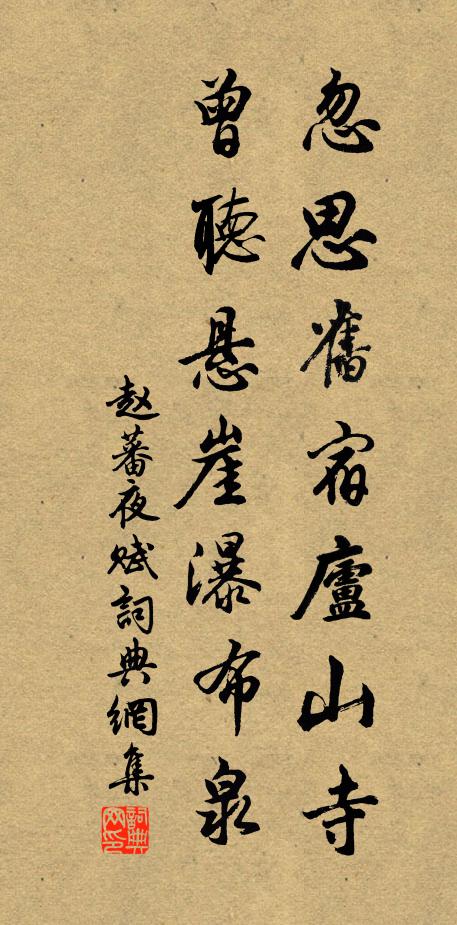 忽思舊宿廬山寺
曾聽悬崖瀑布泉
赵蕃夜赋詞典網集
詞典網印